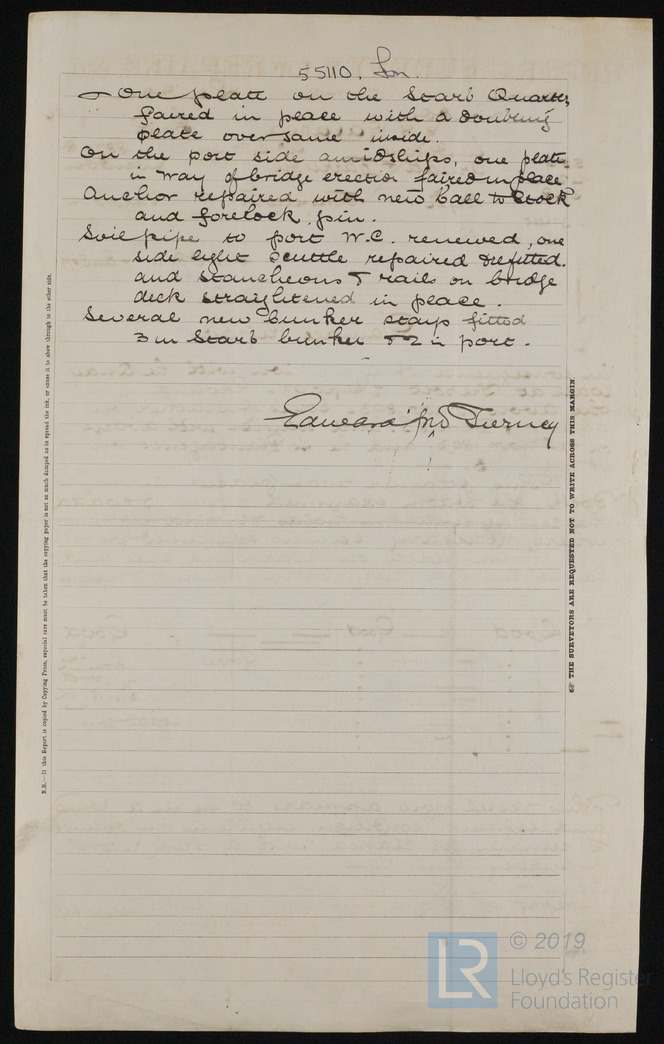 55110. Lon.
One plate on the Starb Quarter,
faired in place with a doubling
plate over same inside.
On the port side amidships, one plate
in way of bridge erection faired in place
Anchor repaired with new ball to stock
and forelock pin.
Soil pipe to port W.C. renewed, one
side light scuttle repaired & refitted.
and stancheons & rails on bridge
deck straightened in place.
Several new bunker stays fitted
3 in Starb bunker & 2 in port.
Edward Tierney
N.B.—If this Report is copied by Copying Press, especial care must be taken that the copying paper is not so much damped as to spread the ink, or cause it to show through to the other side.
THE SURVEYORS ARE REQUESTED NOT TO WRITE ACROSS THIS MARGIN.
LR
© 2019
Lloyd's Register
Foundation